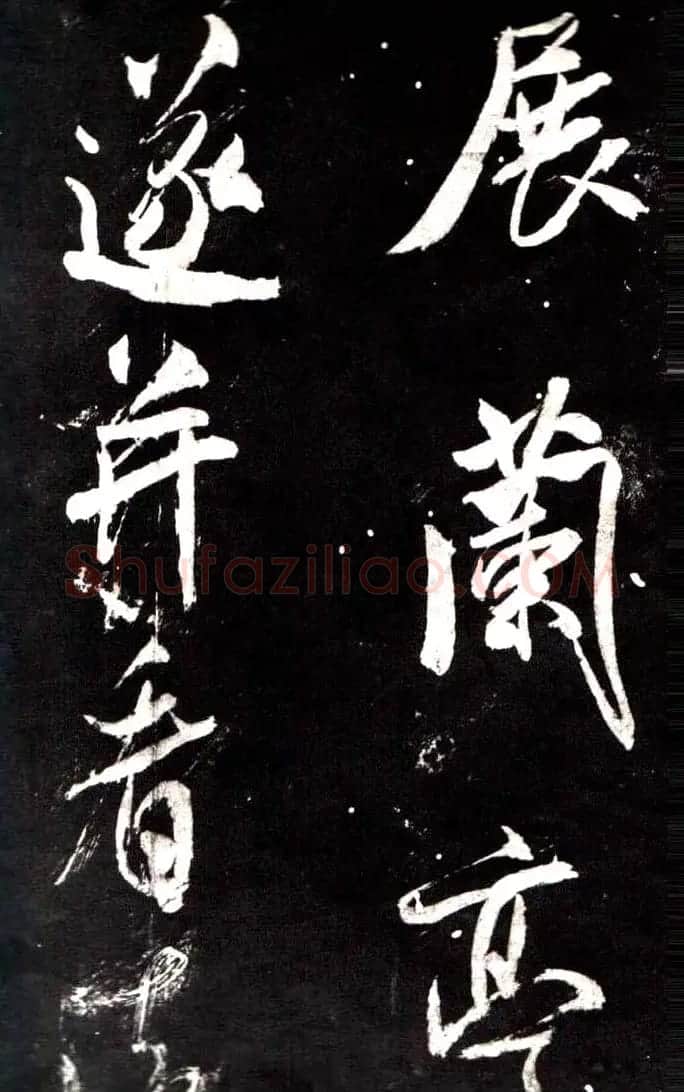 展蘭亭
遂并看
Shufaziliao.COM